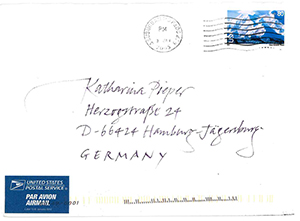 PM
80
Katharina Pieper
Herzogstraße 24
D-66424 Homburg-Jägersburg
GERMANY
UNITED STATES
POSTAL SERVICE
PAR AVION
AIRMAIL